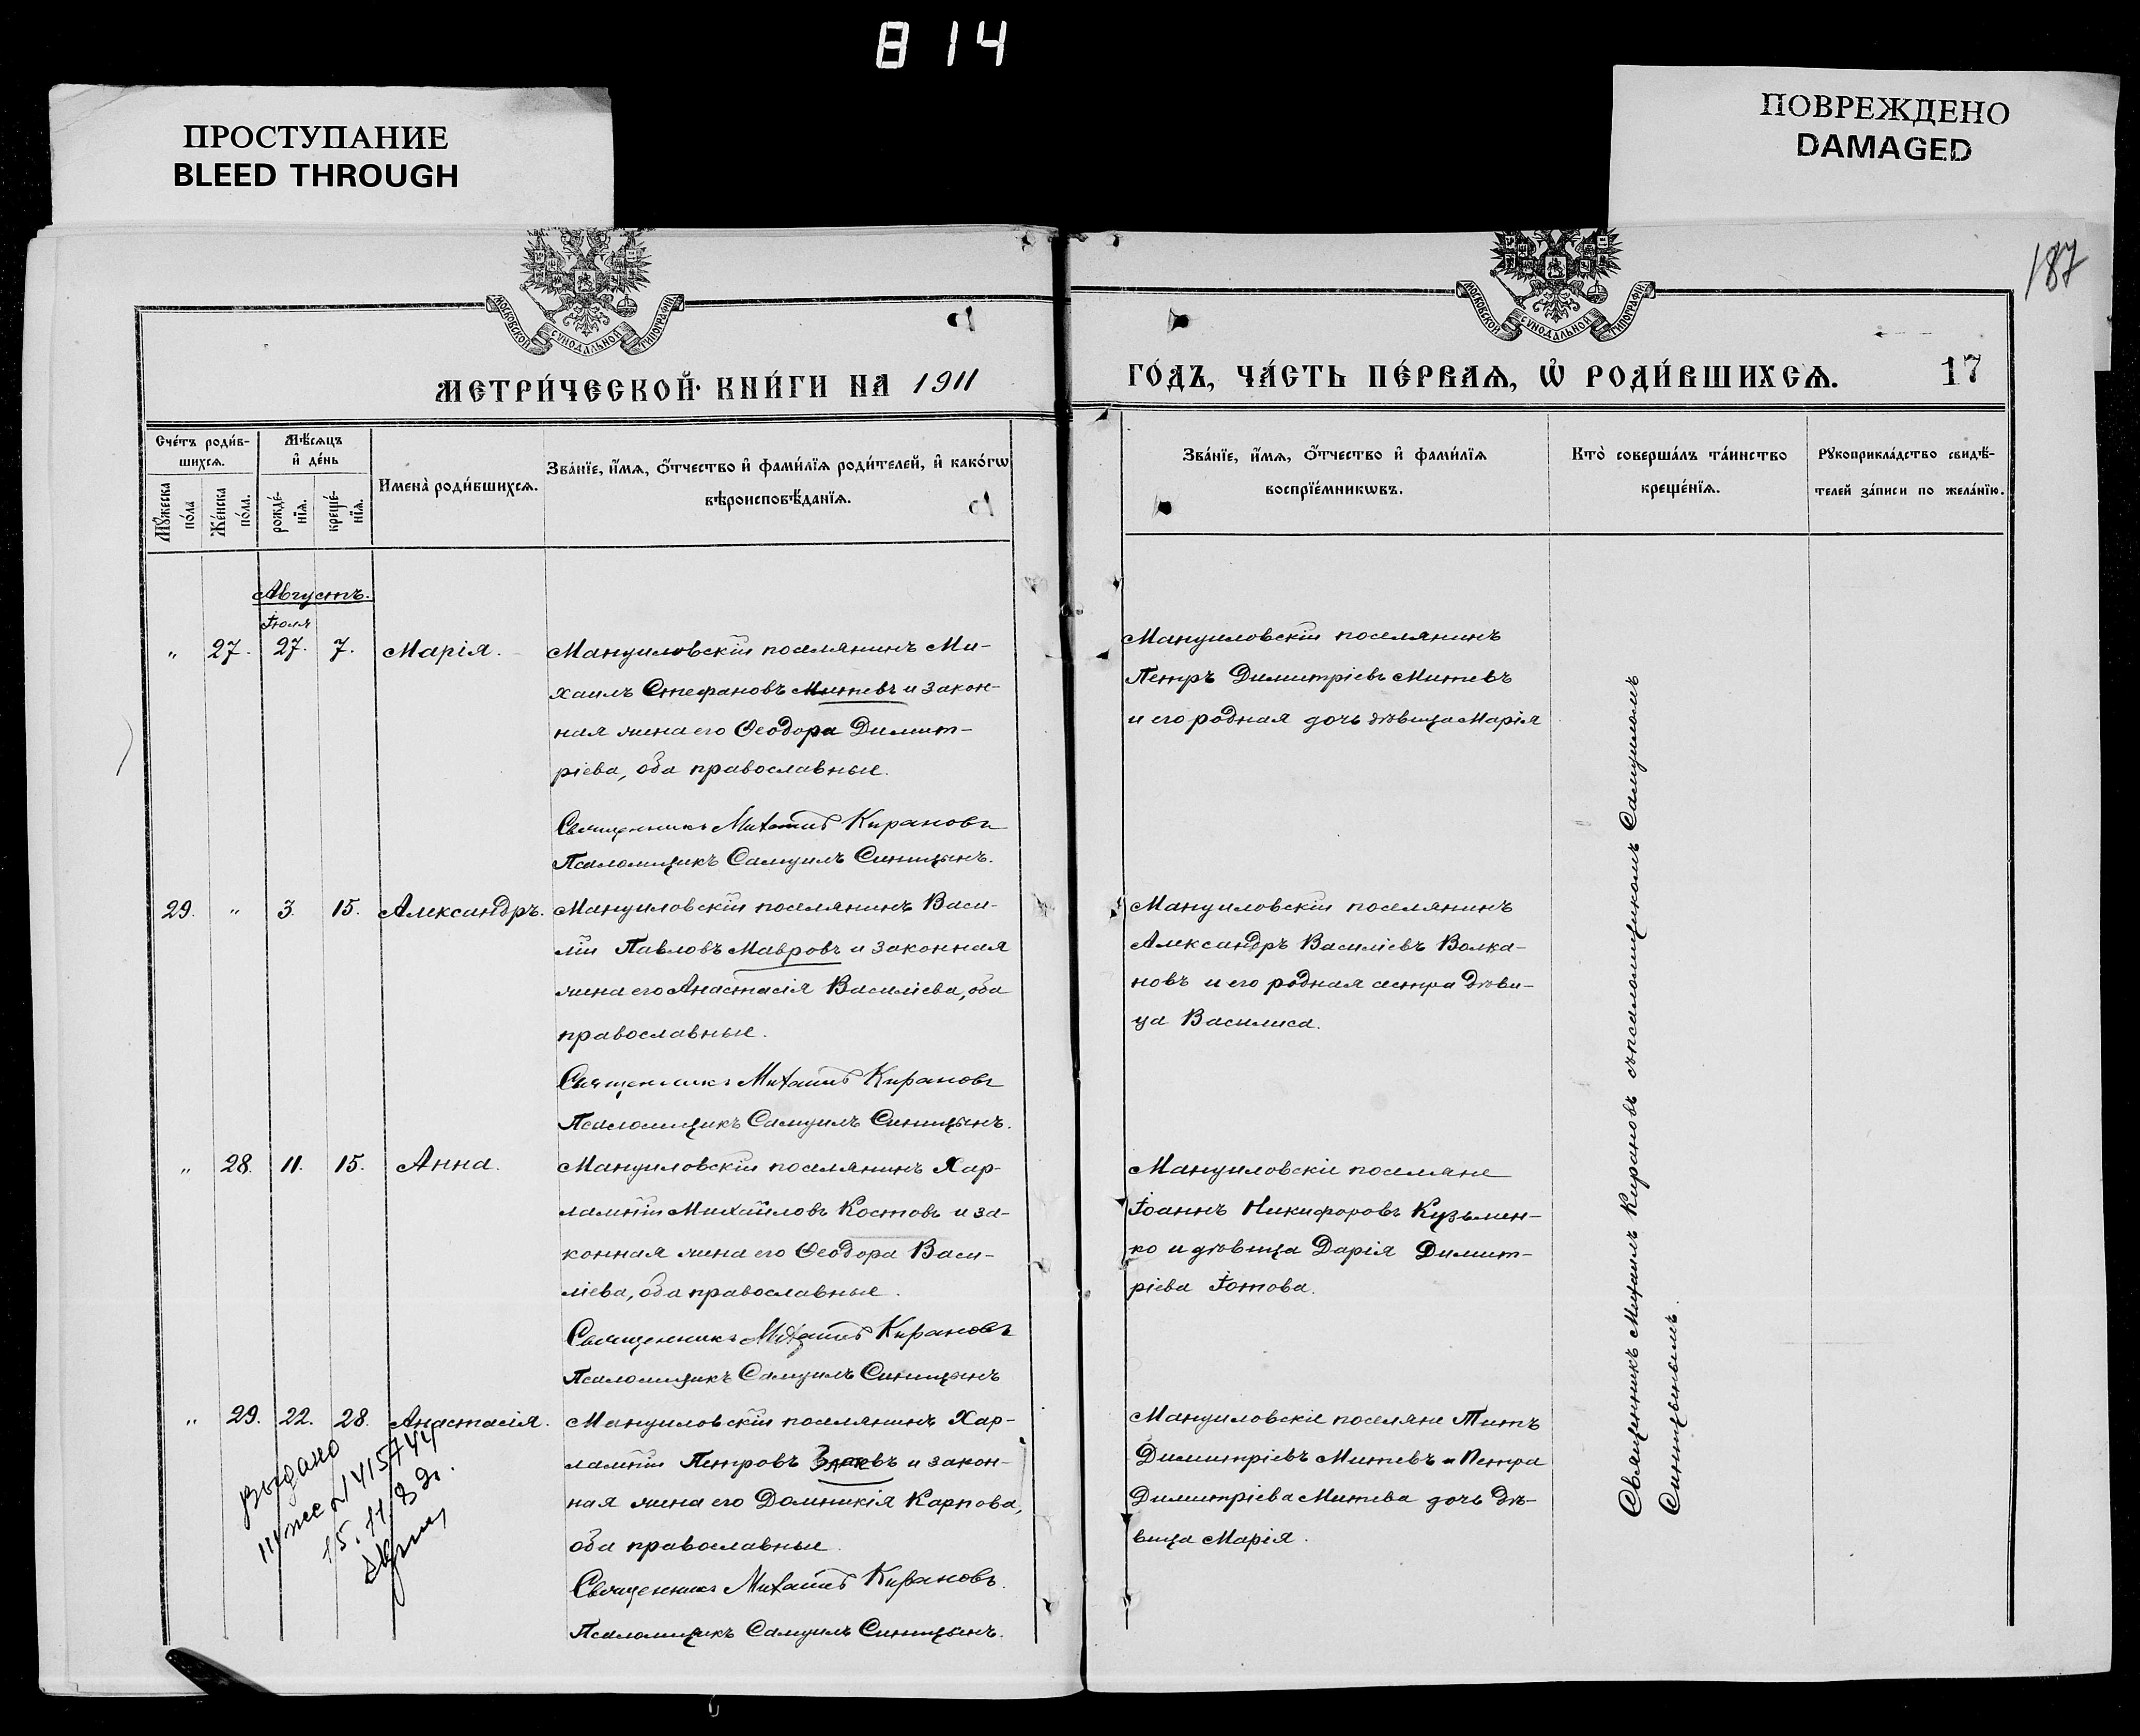 814
ПРОСТУПАНИЕ
BLEED THROUGH
ПОВРЕЖДЕНО
DAMAGED
187
МОСКОВСКОЙ СѴНОДАЛЬНОЙ ТИПОГРАФІИ
МОСКОВСКОЙ СѴНОДАЛЬНОЙ ТИПОГРАФІИ
МЕТРИ́ЧЕСКОЙ КНИ́ГИ НА 1911
ГО́ДЪ, ЧА́СТЬ ПЕ́РВАѦ, Ѡ҆ РОДИ́ВШИХСѦ.
17
Сче́тъ роди́в-
шихсѧ.
Мꙋ́жеска
по́ла
Же́нска
по́ла.
Мѣ́сѧцъ
и҆ де́нь
рожде́-
нїѧ.
креще́-
нїѧ.
Имена̀ роди́вшихсѧ.
Зва́нїе, и҆́мѧ, ѻ҆́тчество и҆ фами́лїѧ роди́телей, и҆ како́гѡ
вѣроисповѣ́данїѧ.
Зва́нїе, и҆́мѧ, ѻ҆́тчество и҆ фами́лїѧ
воспрїе́мникѡвъ.
Кто̀ соверша́лъ та́инство
креще́нїѧ.
Рꙋкоприкла́дство свидѣ́-
телей за́писи по жела́нїю.
Августъ.
Іюля
„ 27. 27. 7. Марія.
Мануиловскій поселянинъ Ми-
хаилъ Стефановъ Митевъ и закон-
ная жена его Ѳеодора Димит-
ріева, оба православные.
Священникъ Михаилъ Кирановъ
Псаломщикъ Самуилъ Синицынъ.
Мануиловскій поселянинъ
Петръ Димитріевъ Митевъ
и его родная дочь дѣвица Марія
29. „ 3. 15. Александръ.
Мануиловскій поселянинъ Васи-
лій Павловъ Мавровъ и законная
жена его Анастасія Василіева, оба
православные.
Священникъ Михаилъ Кирановъ
Псаломщикъ Самуилъ Синицынъ.
Мануиловскій поселянинъ
Александръ Василіевъ Волка-
новъ и его родная сестра дѣви-
ца Василиса.
„ 28. 11. 15. Анна.
Мануиловскій поселянинъ Хар-
лампій Михайловъ Костовъ и за-
конная жена его Ѳеодора Васи-
ліева, оба православные.
Священникъ Михаилъ Кирановъ
Псаломщикъ Самуилъ Синицынъ
Мануиловскіе поселяне
Іоаннъ Никифоровъ Кузьмен-
ко и дѣвица Дарія Димит-
ріева Іотова.
„ 29. 22. 28. Анастасія.
Мануиловскій поселянинъ Хар-
лампій Петровъ и закон-
ная жена его Домникія Карпова,
оба православные.
Священникъ Михаилъ Кирановъ.
Псаломщикъ Самуилъ Синицынъ.
Мануиловскіе поселяне Титъ
Димитріевъ Митевъ и Петра
Димитріева Митева дочь дѣ-
вица Марія.
Священникъ Михаилъ Кирановъ съ псаломщикомъ Самуиломъ
Синицынымъ.
Выдано